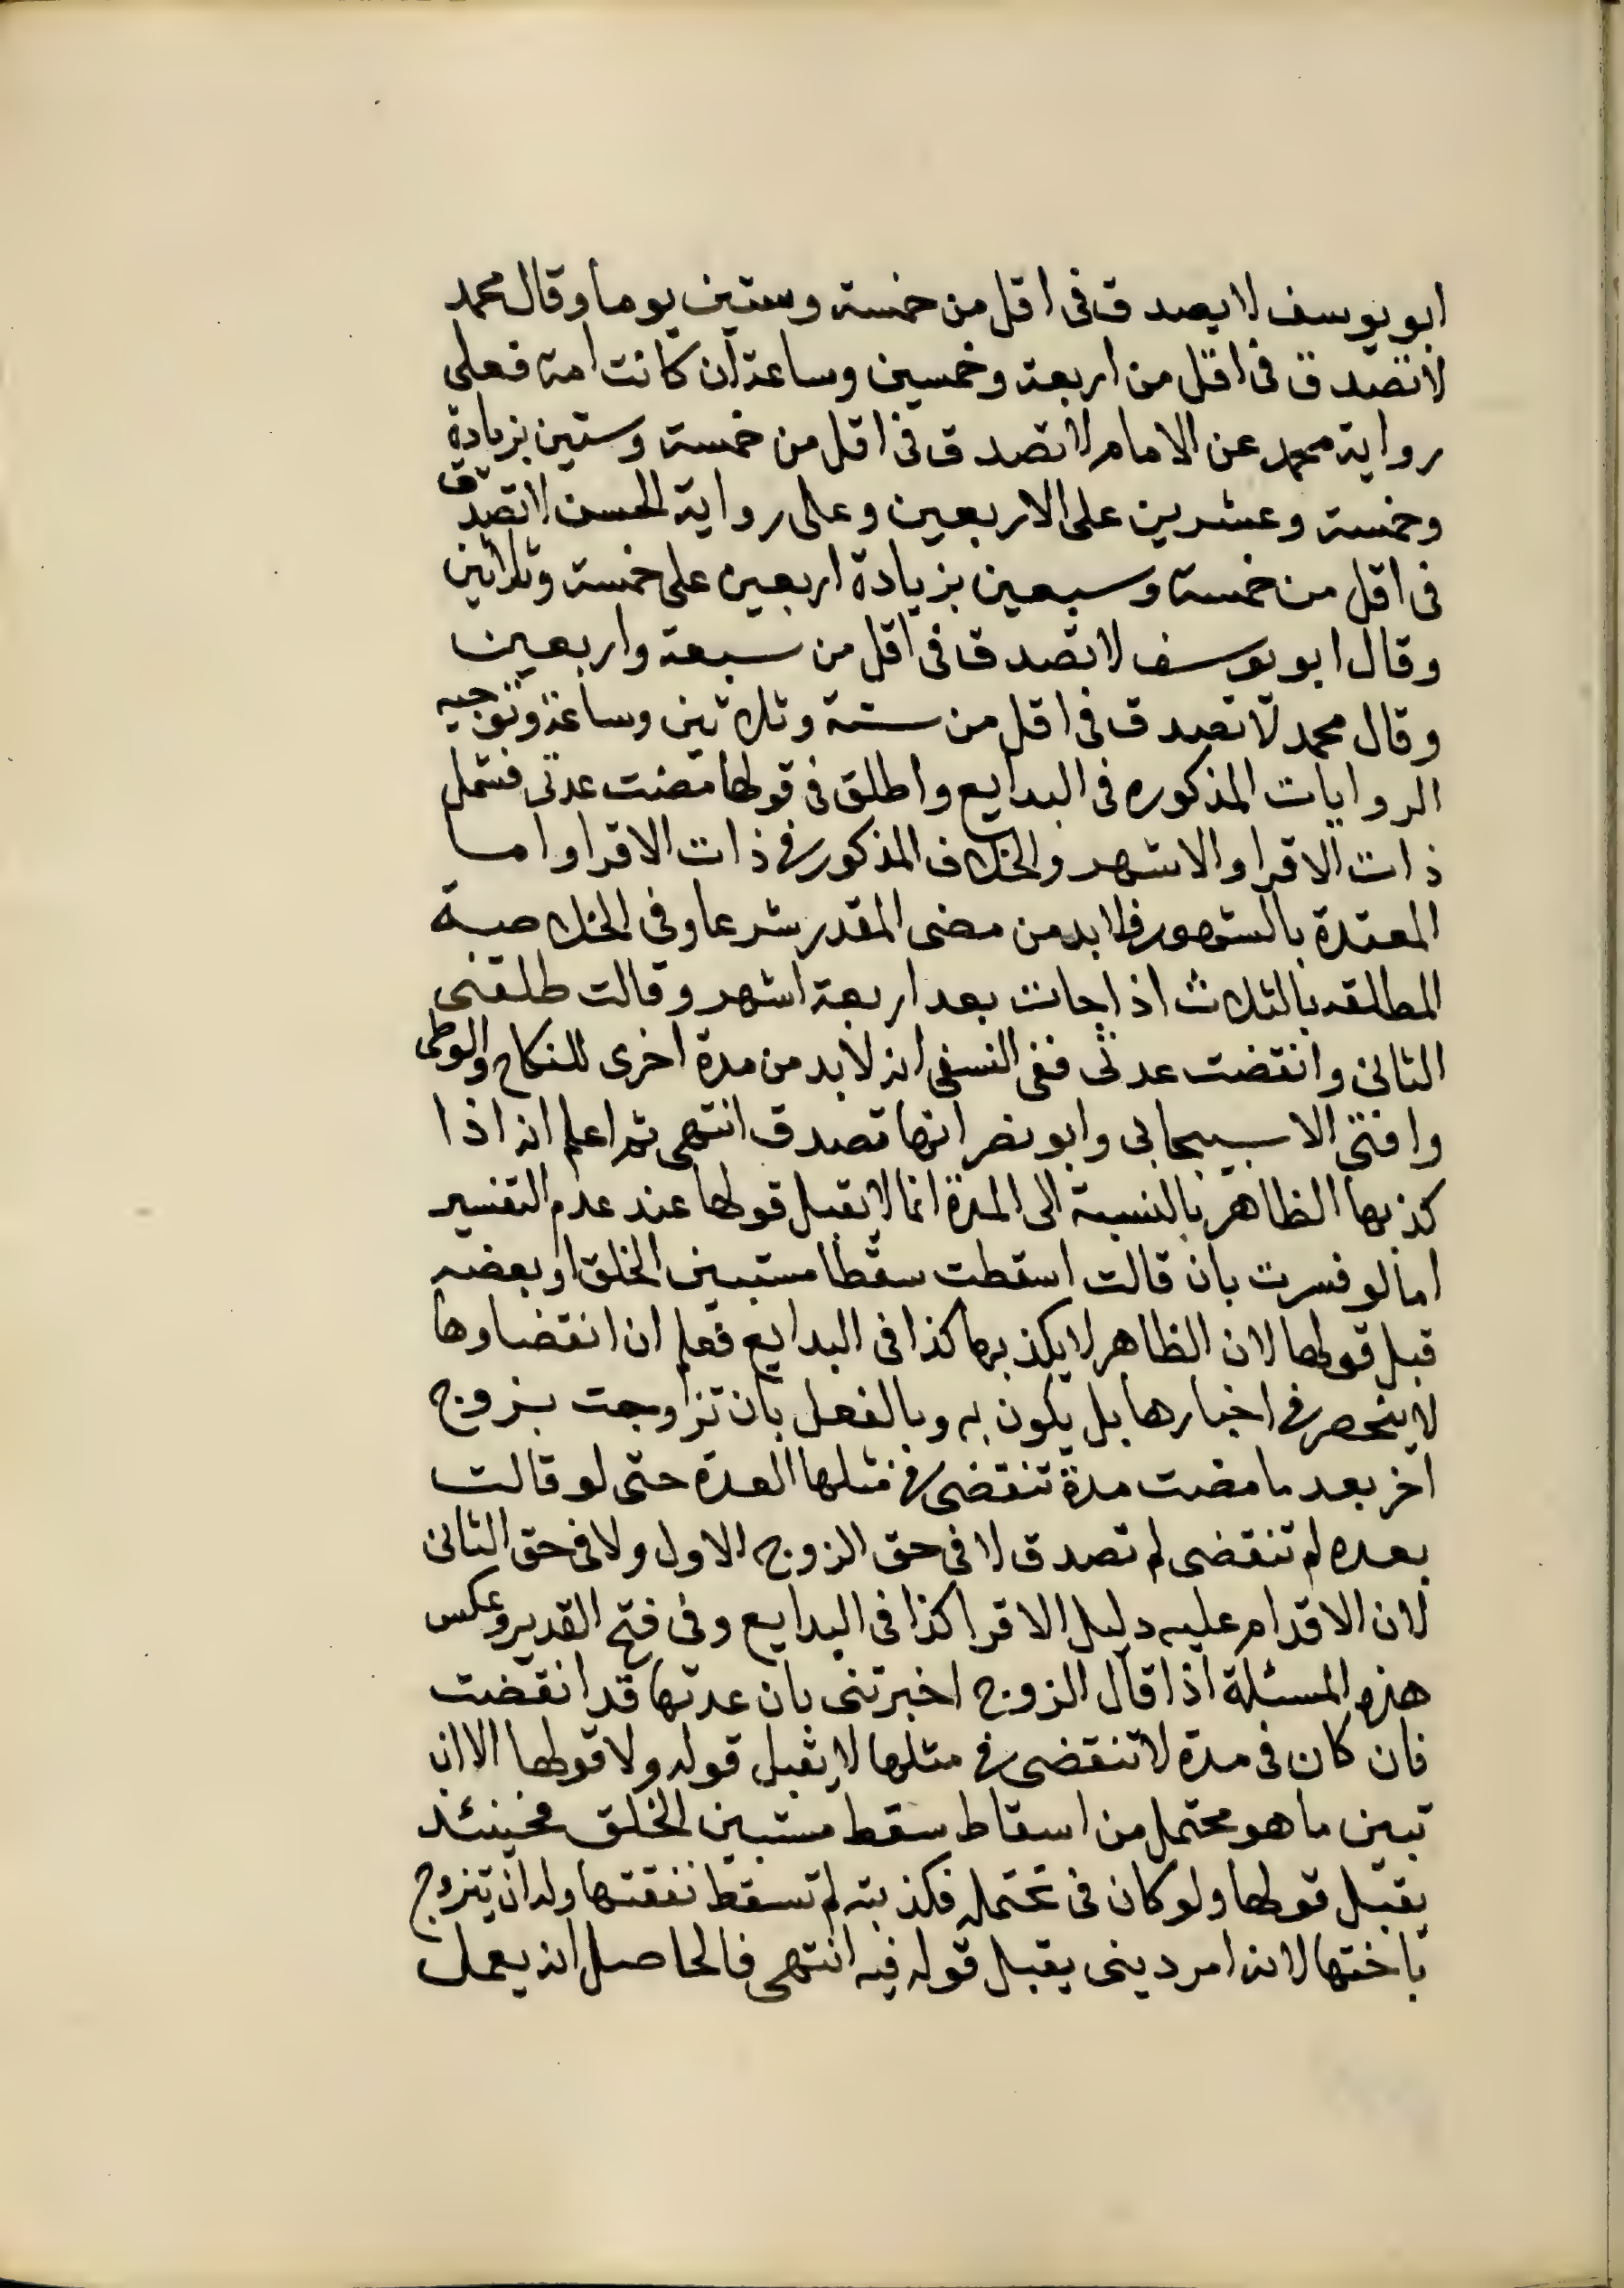 ابو يوسف لا يصدق فى اقل من خمسة وستين يوما وقال محمد
لا تصدق فى اقل من اربعة وخمسين وساعة ان كانت امة فعلى
رواية محمد عن الامام لا تصدق فى اقل من خمسة وستين بزيادة
وخمسة وعشرين على الاربعين وعلى رواية الحسن لا تصدق
فى اقل من خمسة وسبعين بزيادة اربعين على خمسة وثلاثين
وقال ابو يوسف لا تصدق فى اقل من سبعة واربعين
وقال محمد لا تصدق فى اقل من ستة وثلاثين وساعة وتوجيه
الروايات المذكوره فى البدايع واطلق فى قولها مضت عدتى فشمل
ذات الاقرا والاشهر والخلاف المذكور فى ذات الاقرا واما
المعتدة بالشهور فلا بد من مضى المقدر شرعا وفى الخلاصة
المطلقه بالثلاث اذا جات بعد اربعة اشهر وقالت طلقنى
الثانى وانقضت عدتى ففى النسفى انه لا بد من مدة اخرى للنكاح والوطى
وافتى الاسبيجابى وابو نصر انها تصدق انتهى ثم اعلم انه اذا
كذبها الظاهر بالنسبة الى المدة انما لا يقبل قولها عند عدم التفسير
اما لو فسرت بان قالت اسقطت سقطا مستبين الخلق او بعضه
قبل قولها لان الظاهر لا يكذبها كذا فى البدايع فعلم ان انقضاوها
لا ينحصر فى اخبارها بل يكون به وبالفعل بان تزاوجت بزوج
اخر بعد ما مضت مدة تنقضى فى مثلها العدة حتى لو قالت
بعده لم تنقضى لم تصدق لا فى حق الزوج الاول ولا فى حق الثانى
لان الاقدام عليه دليل الاقرا كذا فى البدايع وفى فتح القدير وعكس
هذه المسئلة اذا قال الزوج اخبرتنى بان عدتها قد انقضت
فان كان فى مدة لا تنقضى فى مثلها لا يقبل قوله ولا قولها الا ان
تبين ما هو محتمل من اسقاط سقط مستبين الخلق فحينئذ
يقبل قولها ولو كان فى تحتمله فكذبته لم تسقط نفقتها وله ان يتزوج
باختها لانه امر دينى يقبل قوله فيه انتهى فالحاصل انه يعمل